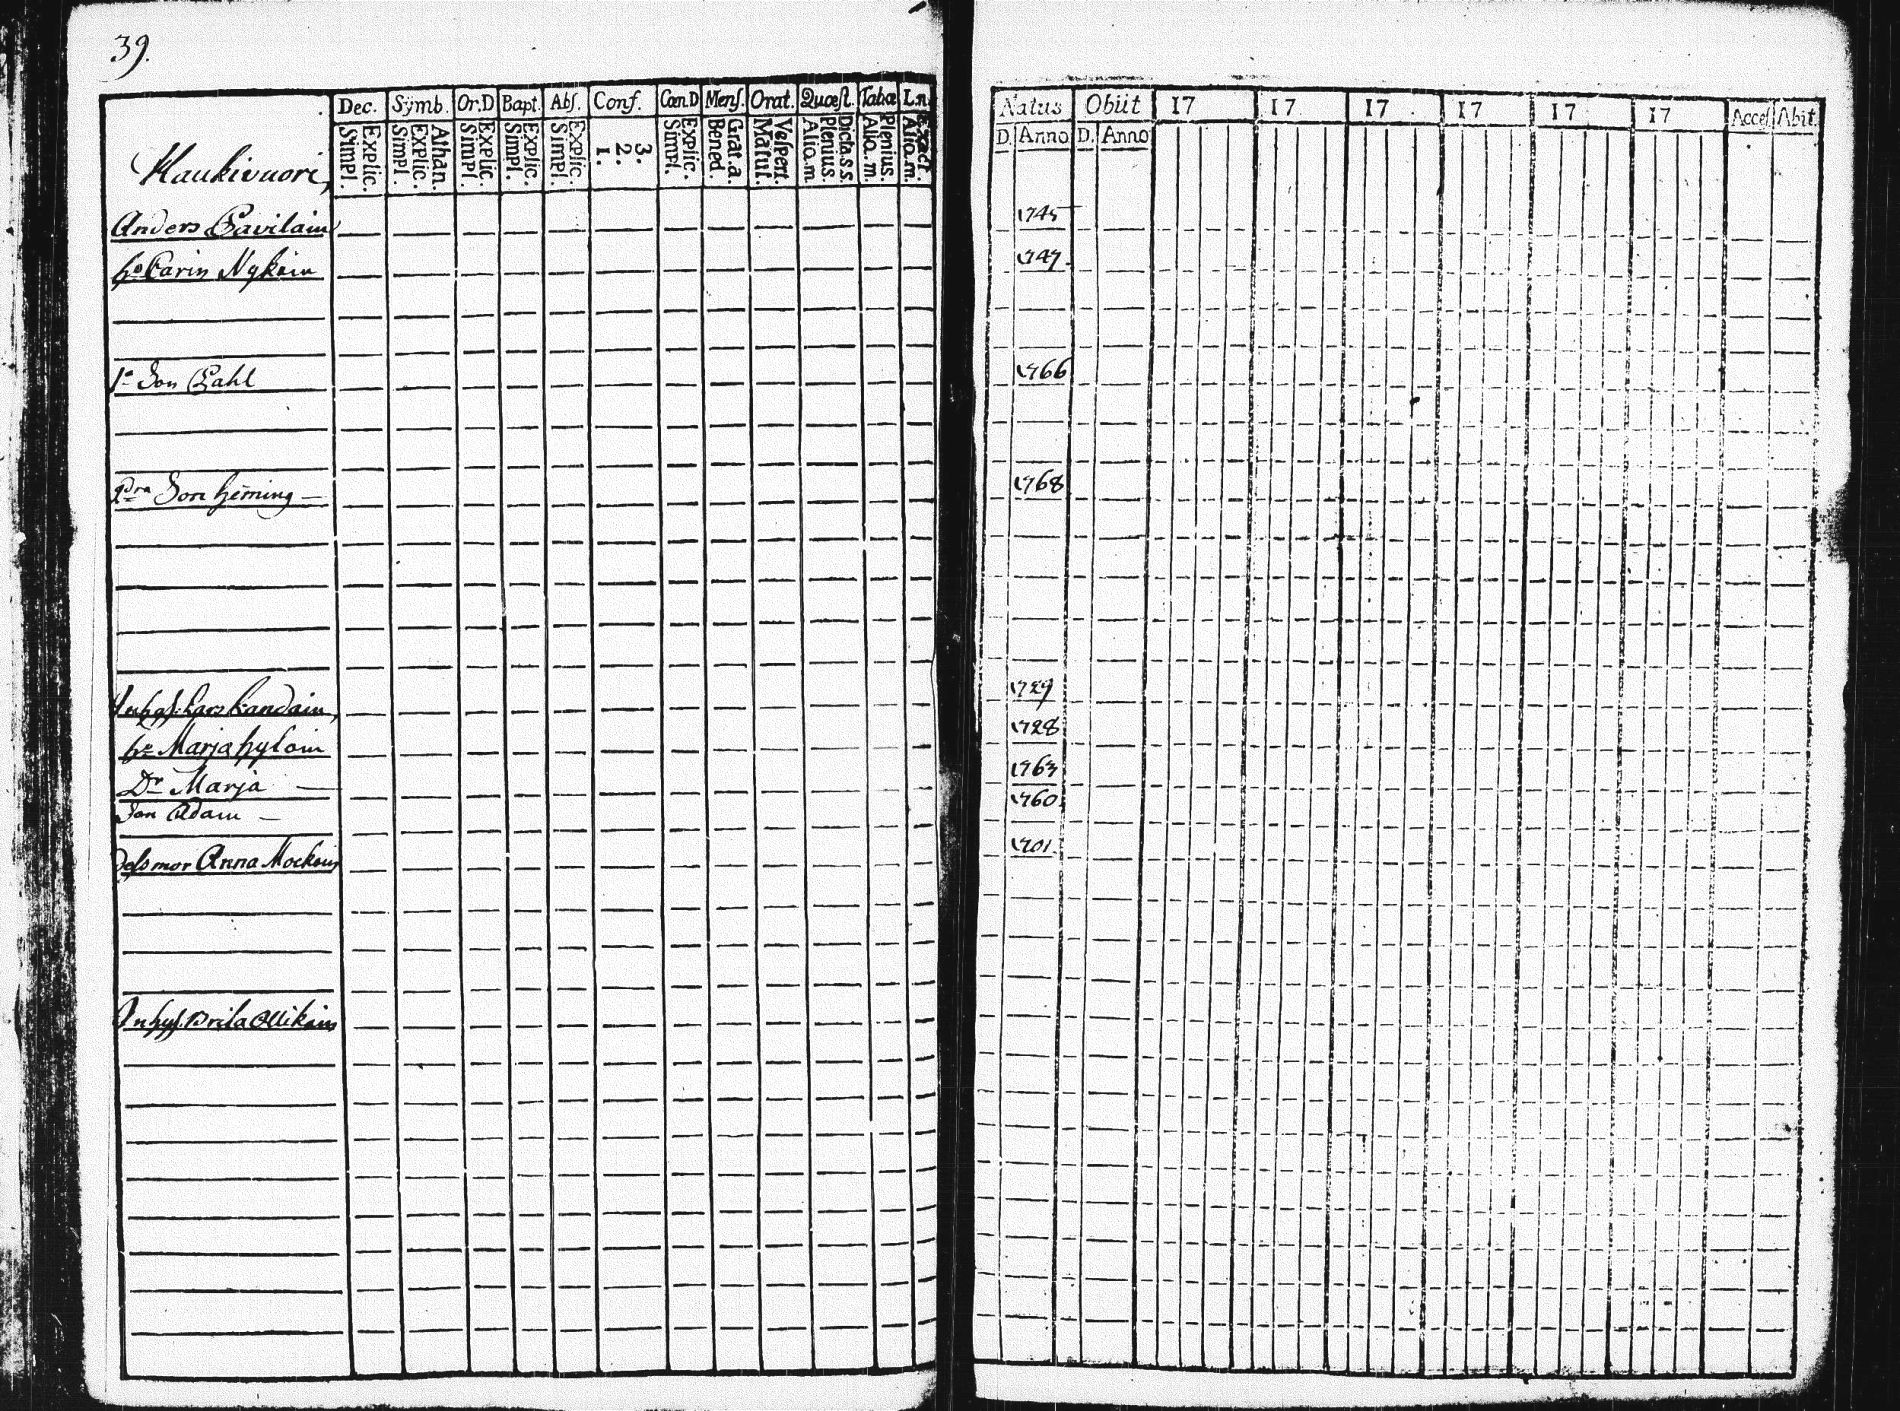 39.
Dec. Symb. Or.D Bapt. Abs. Conf. Cœn.D Mens. Orat. Quæst. Tabæ
Simpl. Explic. Simpl. Explic. Athan. Simpl. Explic. Simpl. Explic. Simpl. Explic. 1. 2. 3. Simpl. Explic. Bened. Grat.a. Matut. Vespert. Alio.m Plenius. Dicta.s.s. Alio.m. Plenius. Alio.m. Exact.
Natus Obiit 17 17 17 17 17 17 Acces. Abit
D. Anno D. Anno
Haukivuori,
Anders Pavilain 1745
Carin Nykäin 1747.
1e Son Pahl 1766
2dra Son Heming 1768
Lars Kandain, 1729
Marja Hyloin 1728
Dr Marja 1763
Son Adam 1760
mor Anna 1701
Inhys. Brita Ollikain